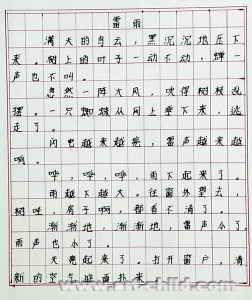 雷雨
满天的乌云，黑沉沉地压下
来。树上的叶子一动不动，蝉一
声也不叫。
忽然一阵大风，吹得树枝乱
摆。一只蜘蛛从网上垂下来，逃
走了。
闪电越来越亮，雷声越来越
响。
哗，哗，哗，雨下起来了。
雨越下越大。往窗外望去，
树哇，房子啊，都看不清了。
渐渐地，渐渐地，雷声小了，
雨声也小了。
天亮起来了。打开窗户，清
新的空气迎面扑来